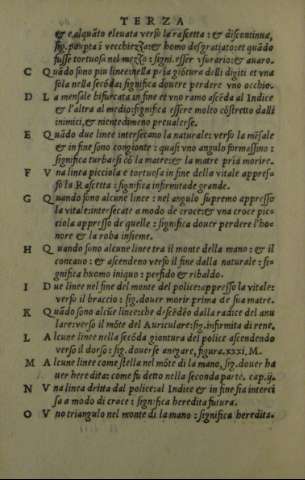 TERZA
& e alquãto eleuata verso la rascetta: & discontinua,
sig. poupta i vecchiezza: & homo desgratiato: et quãdo
fusse tortuosa nel mezzo: signi. esser vsurario: & auaro.
C Quãdo sono piu linee: nella pria giõtura delli digiti et vna
sola nella secõda: significa douere perdere vno occhio.
D La mensale bifurcata in fine et vno ramo ascẽda al Indice
& l'altra al medio: significa essere molto cõstretto dalli
inimici, & nientedimeno preualerse.
E Quãdo due linee intersecano la naturale: verso la mẽsale
& in fine sono congionte: quasi vno angulo formassino:
significa turbarsi cõ la matre: & la matre pria morire.
F Vna linea picciola e tortuosa in fine della vitale appres-
so la Rascetta: significa infirmita de grande.
G Quando sono alcune linee: nel angulo supremo appresso
la vitale: intersecate a modo de croce: & vna croce pic-
ciola appresso de quelle: significa douer perdere l'ho-
nore & la roba insieme.
H Quando sono alcune linee tra il monte della mano: & il
concauo: & ascendeno verso il fine dalla naturale: si-
gnifica huomo iniquo: perfido & ribaldo.
I Due linee nel fine del monte del police: appresso la vitale:
verso il braccio: sig. douer morir prima de sua matre.
K Quãdo sono alcũe linee: che descẽdẽo dalla radice del anu
lare: verso il mõte del Auriculare: sig. infirmita di rene,
L Alcune linee nella secõda giontura del police ascendendo
verso il dorso: sig. douerse anegare, figura. xxxi. M.
M Alcune linee come stella nel mõte di la mano, sig. douer ha
uer heredita: come fu detto nella seconda parte. cap. ij.
N Vna linea dritta dal police: al Indice & in fine sia interci
sa a modo di croce: significa heredita futura.
O Vno triangulo nel monte di la mano: significa heredita.